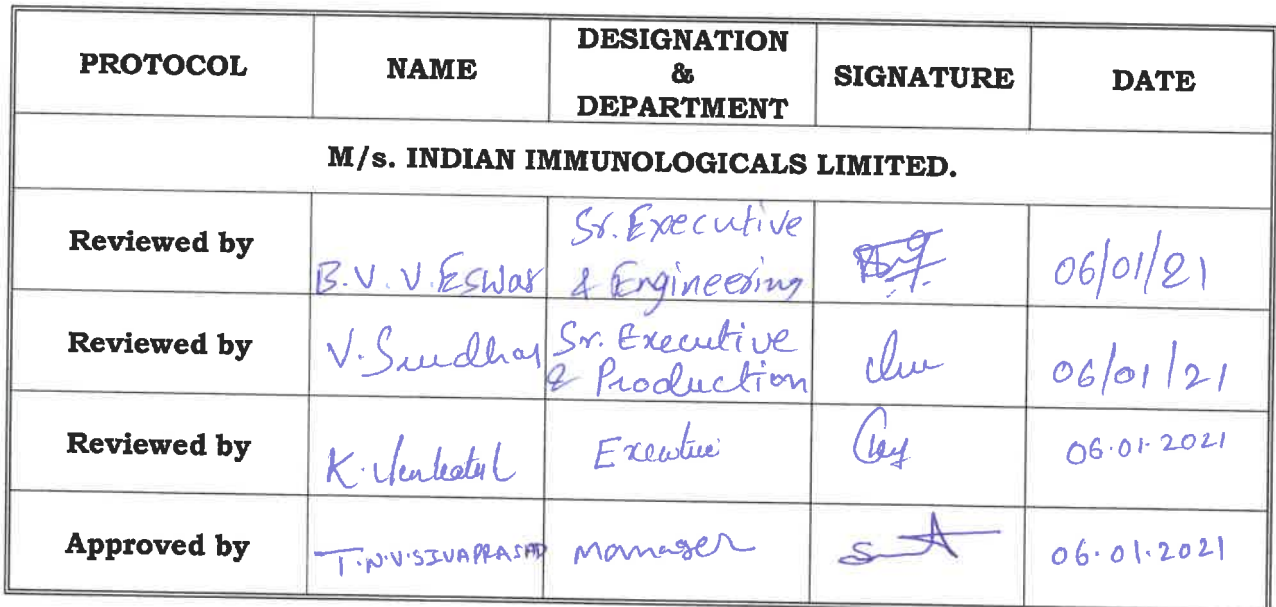 PROTOCOL NAME DESIGNATION & DEPARTMENT SIGNATURE DATE
M/s. INDIAN IMMUNOLOGICALS LIMITED.
Reviewed by B.V.V.Eswar Sr. Executive & Engineering 06/01/21
Reviewed by V. Sr. Executive & Production 06/01/21
Reviewed by K. Executive 06.01.2021
Approved by T.N.V.SIVAPRASAD Manager 06.01.2021